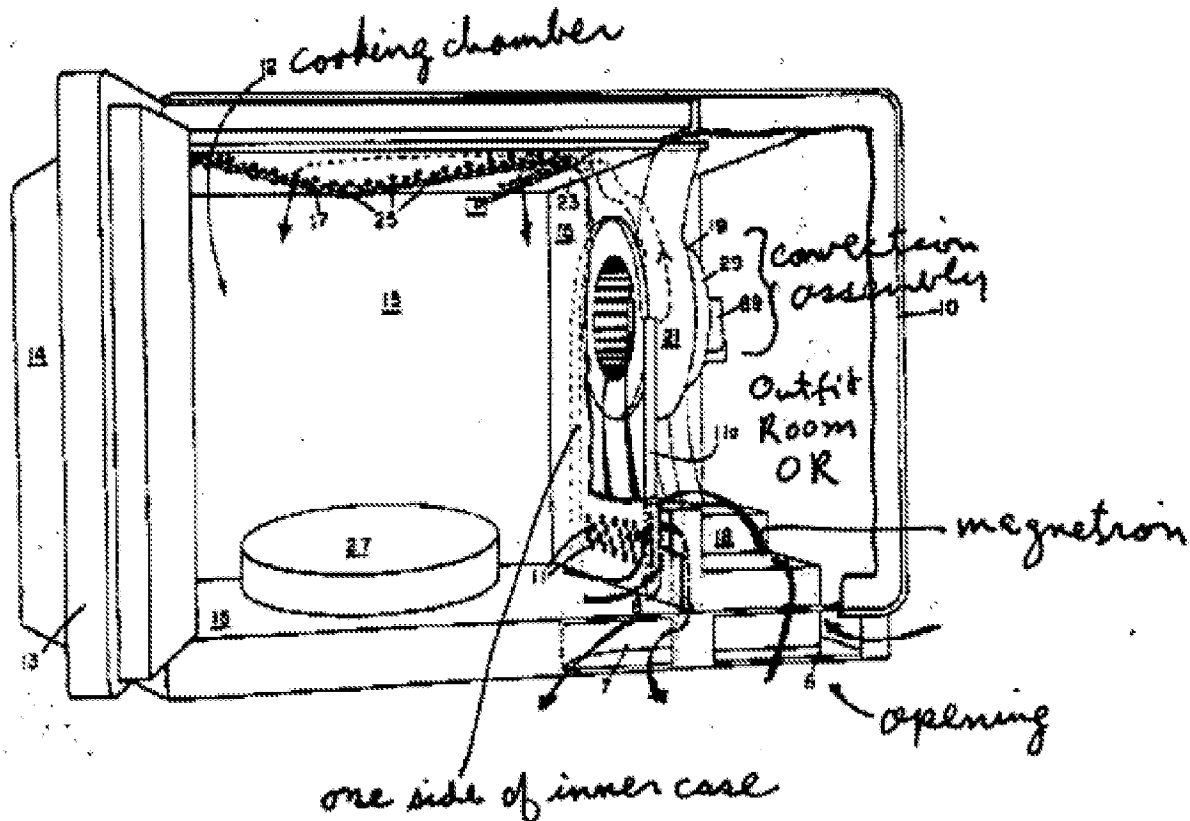 12 cooking chamber
17
25
23
16
19
29
convection
assembly
15
21
10
14
Outfit
Room
OR
11a
magnetron
18
27
11
15
13
7
6
opening
one side of inner case